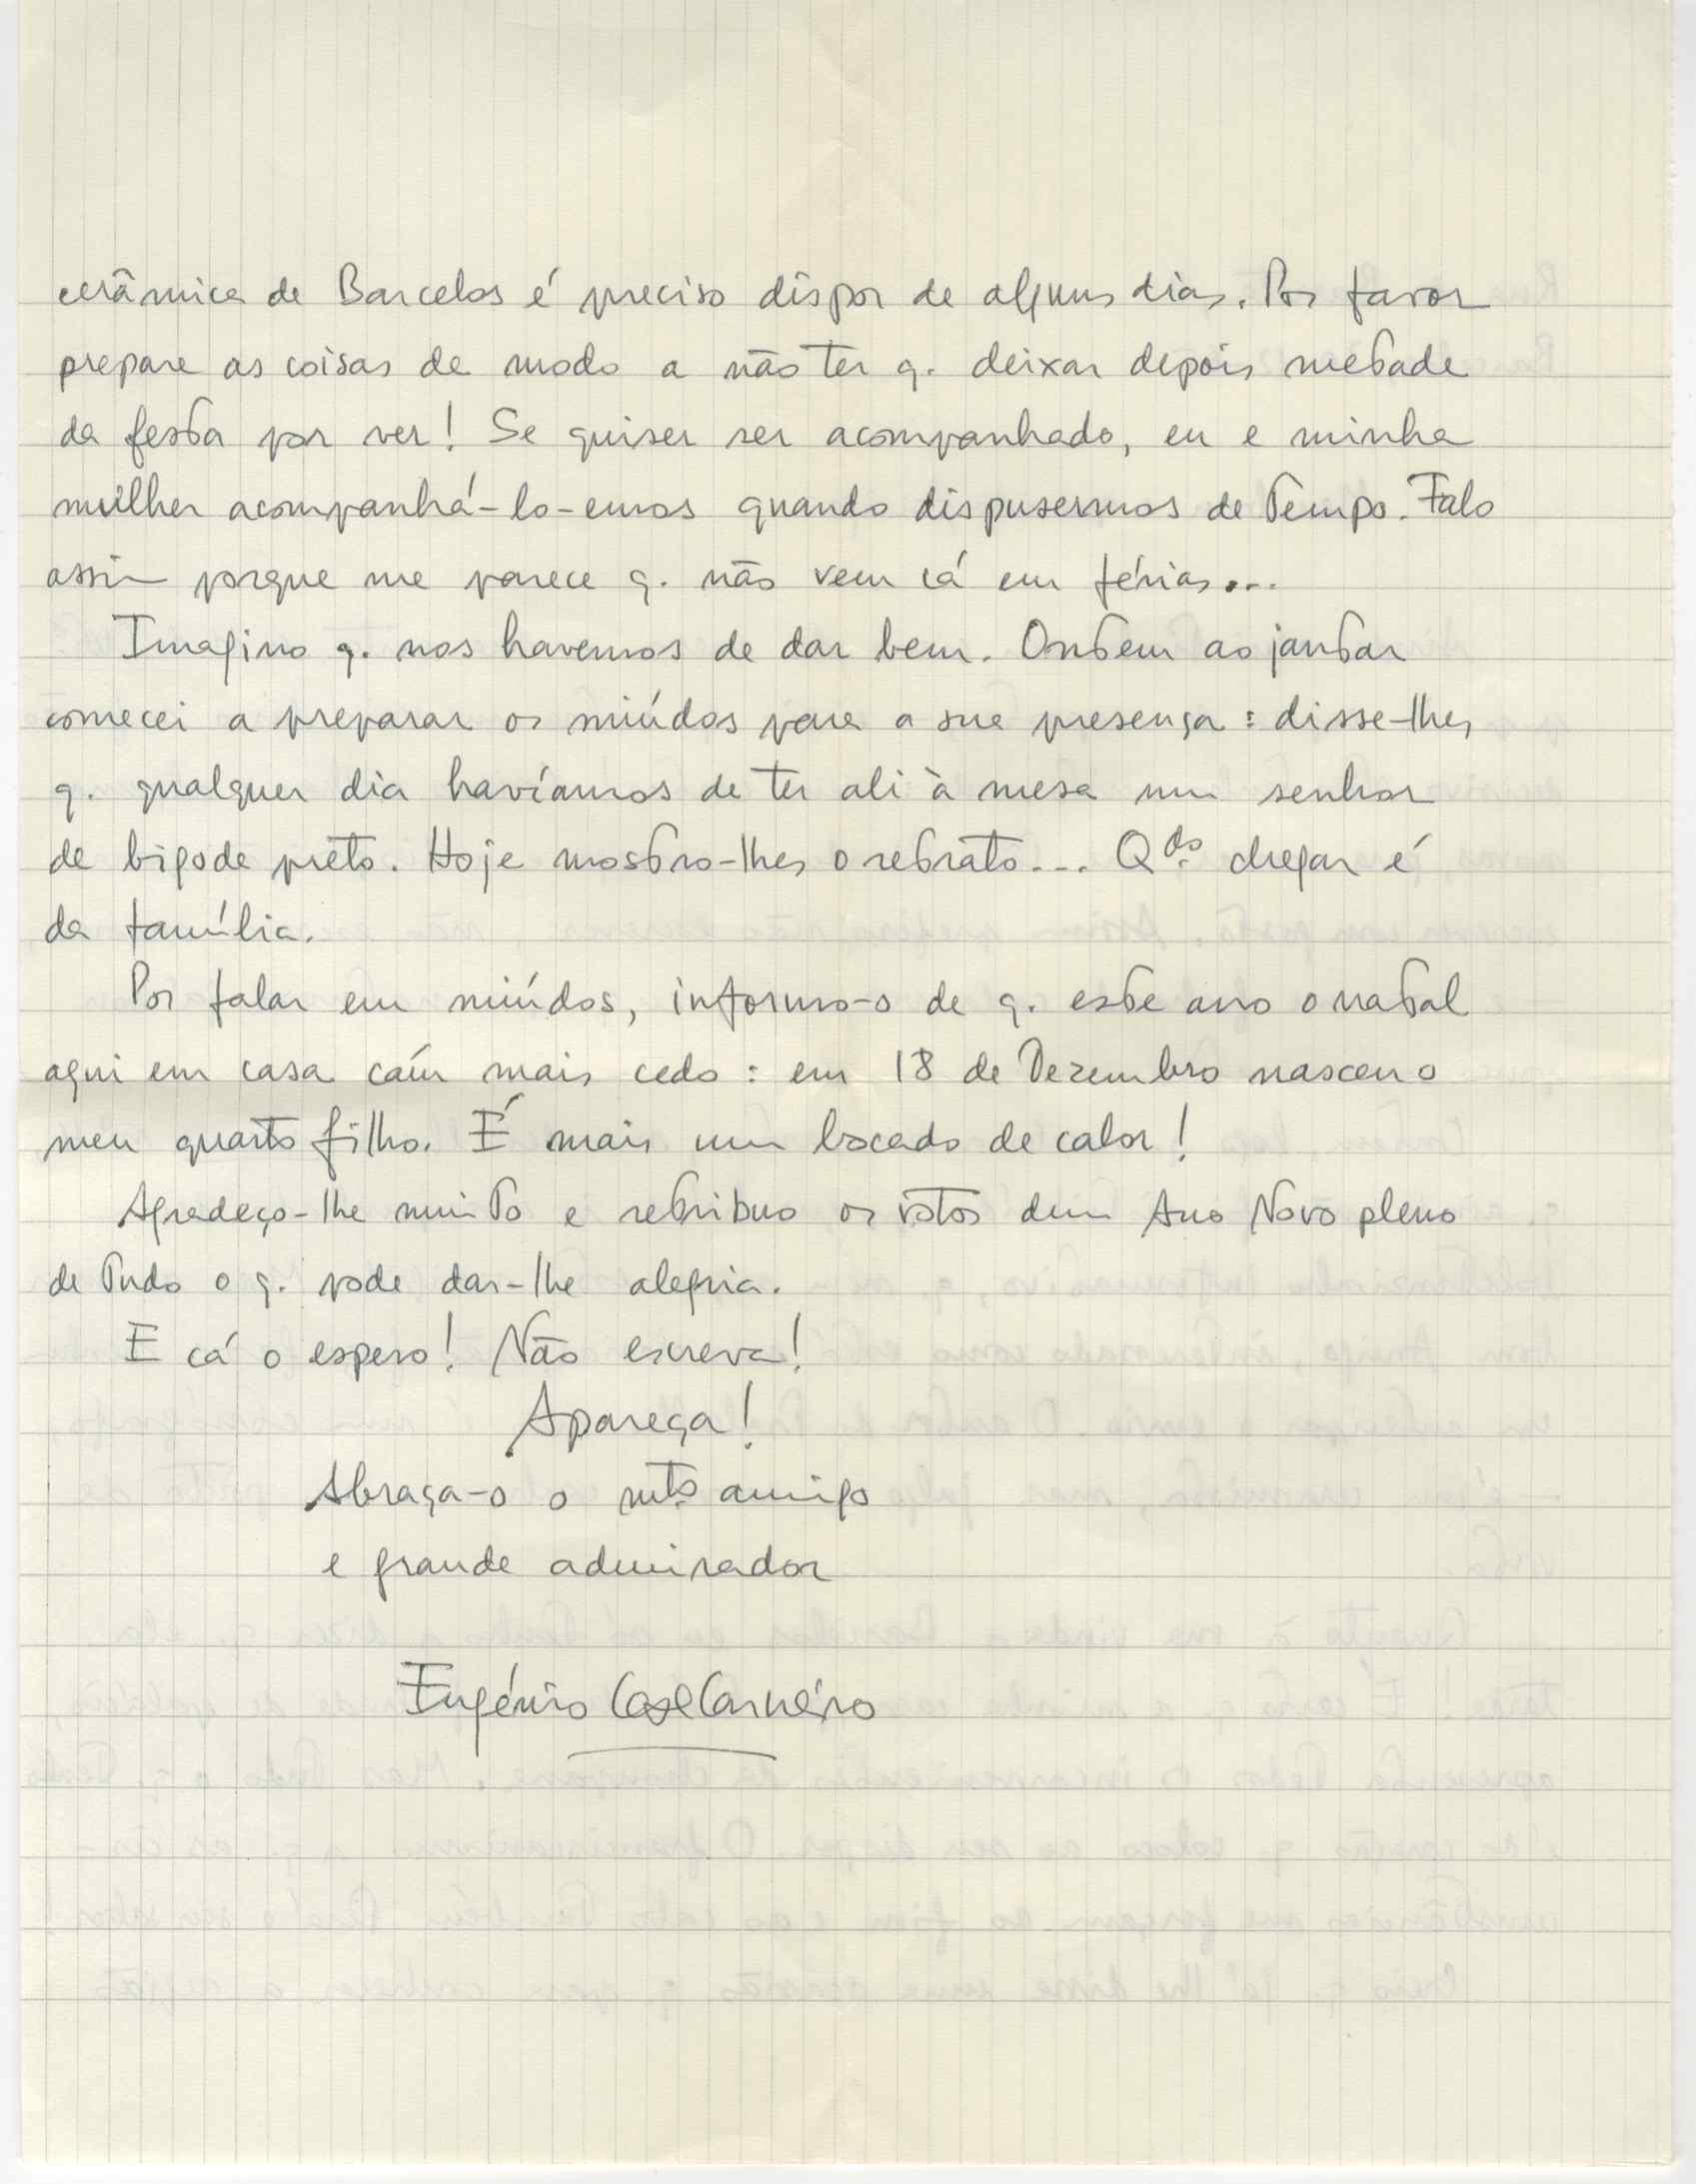 cerâmica de Barcelos é preciso dispor de alguns dias. Por favor
prepare as coisas de modo a não ter q. deixar depois metade
da festa por ver! Se quiser ser acompanhado, eu e minha
mulher acompanhá-lo-emos quando dispusermos de tempo. Falo
assim porque me parece q. não vem cá em férias...
Imagino q. nos havemos de dar bem. Ontem ao jantar
comecei a preparar os miúdos para a sua presença: disse-lhes
q. qualquer dia havíamos de ter ali à mesa um senhor
de bigode preto. Hoje mostro-lhes o retrato... Qdo. chegar é
da família.
Por falar em miúdos, informo-o de q. este ano o natal
aqui em casa caíu mais cedo: em 18 de Dezembro nasceu o
meu quarto filho. É mais um bocado de calor!
Agradeço-lhe muito e retribuo os votos dum Ano Novo pleno
de tudo o q. pode dar-lhe alegria.
E cá o espero! Não escreva!
Apareça!
Abraça-o o mto. amigo
e grande admirador
Eugénio Carneiro